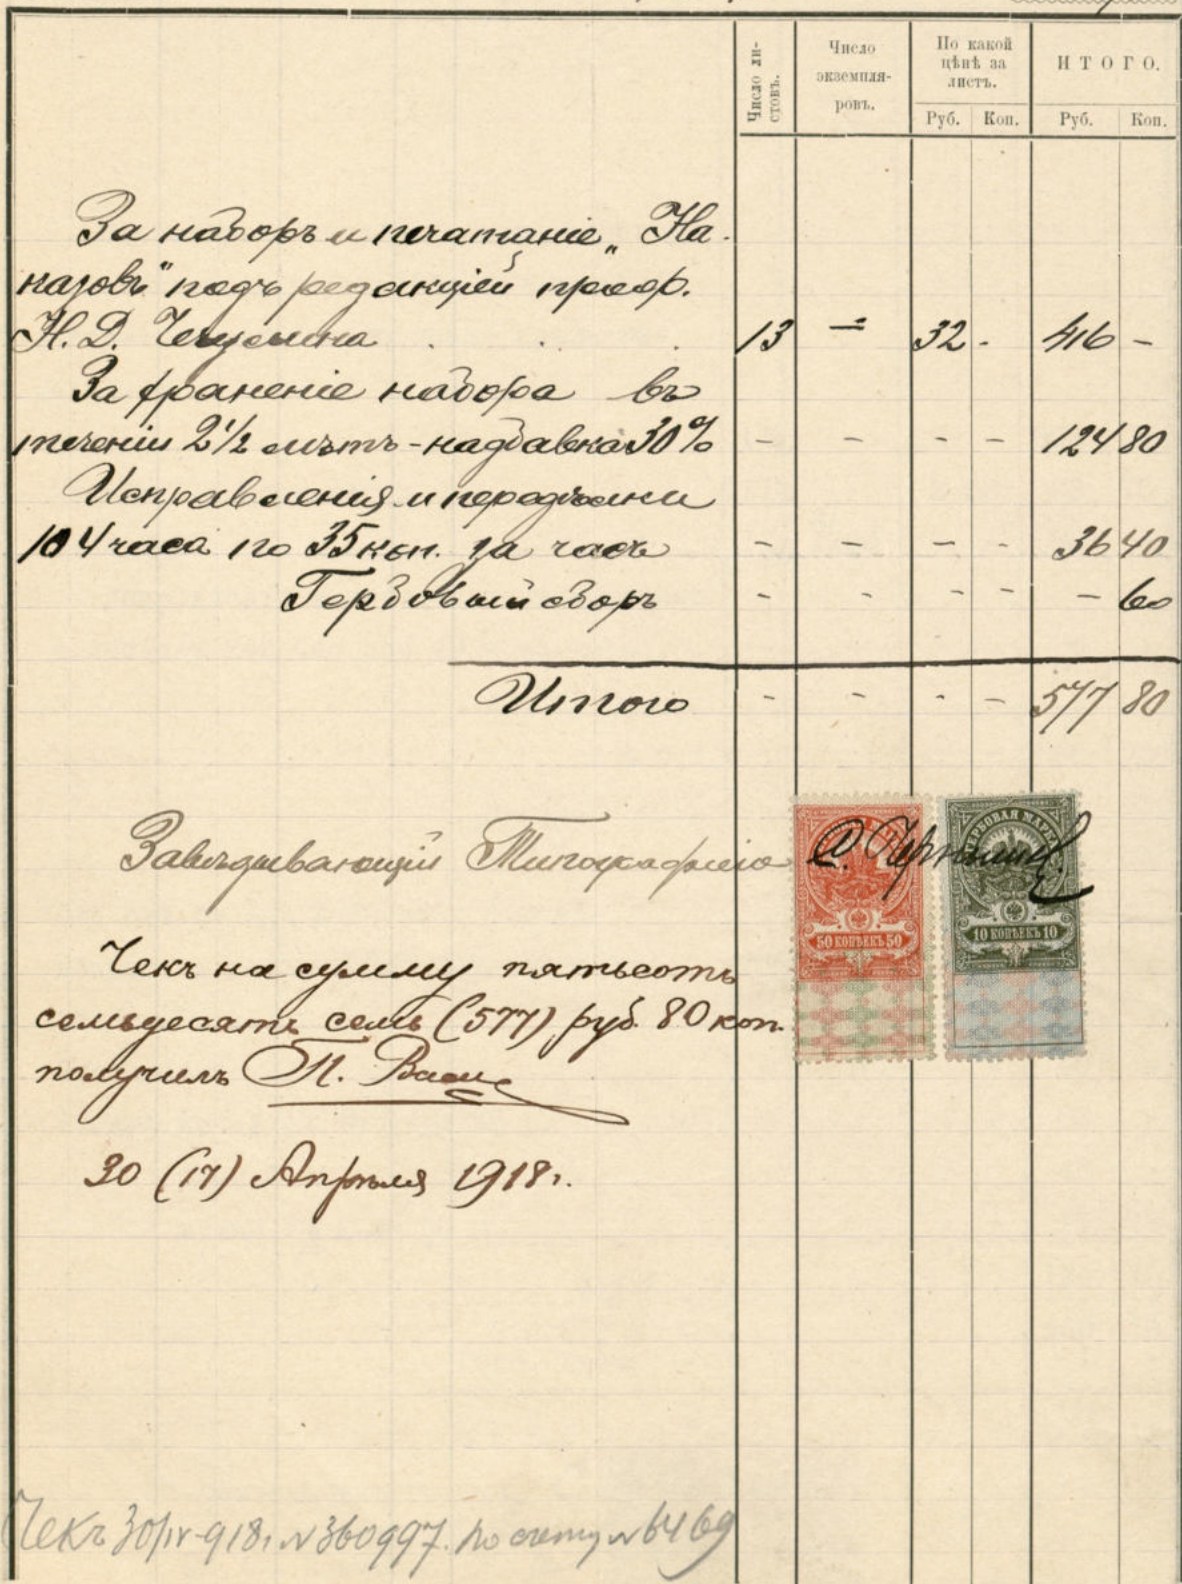 Число ли-
стовъ.
Число
экземпля-
ровъ.
По какой
цѣнѣ за
листъ.
ИТОГО.
Руб. Коп. Руб. Коп.
За наборъ и печатаніе „На-
казовъ" подъ редакціей проф.
Н. Д. Чечулина 13 = 32 - 416 -
За храненіе набора въ
теченіи 2 1/2 лѣтъ - надбавка 30% - - - - 124 80
Исправленія и передѣлки
104 часа по 35 коп. за часъ - - - - 36 40
Гербовый сборъ - - - - - 60
Итого - - - - 577 80
Завѣдывающій Типографіею
ГЕРБОВАЯ МАРКА
50 КОПѢЕКЪ 50
10 КОПѢЕКЪ 10
Чекъ на сумму пятьсотъ
семьдесятъ семь (577) руб. 80 коп.
получилъ П.
30 (17) Апрѣля 1918 г.
Чекъ 30/IV-918 г. N 360997. по счету N 6469